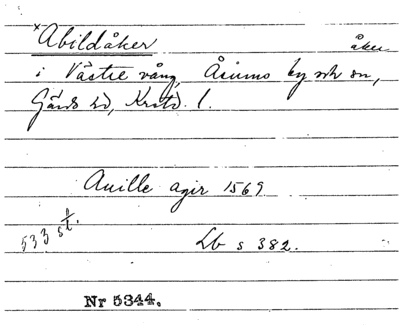 *Abildåker åker
i Västre vång, Åsumo by och sn,
Gärds hd, Kristd. l.
Auille agir 1569
533 s
Lb s 382.
Nr 5344.